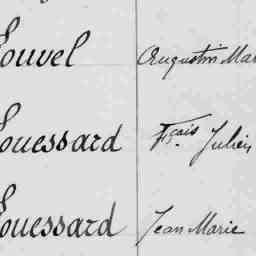 Louvel Augustin Mar
Louessard Fçais Julien
Louessard Jean Marie